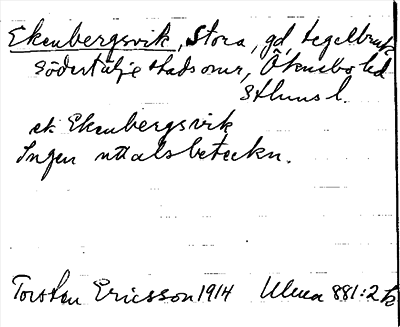 Ekenbergsvik, Stora, gd, tegelbruk
Södertälje stadsomr, Öknebo hd
Sthlms l.
ek Ekenbergsvik
Ingen uttalsbeteckn.
Torsten Ericsson 1914 881:2 k